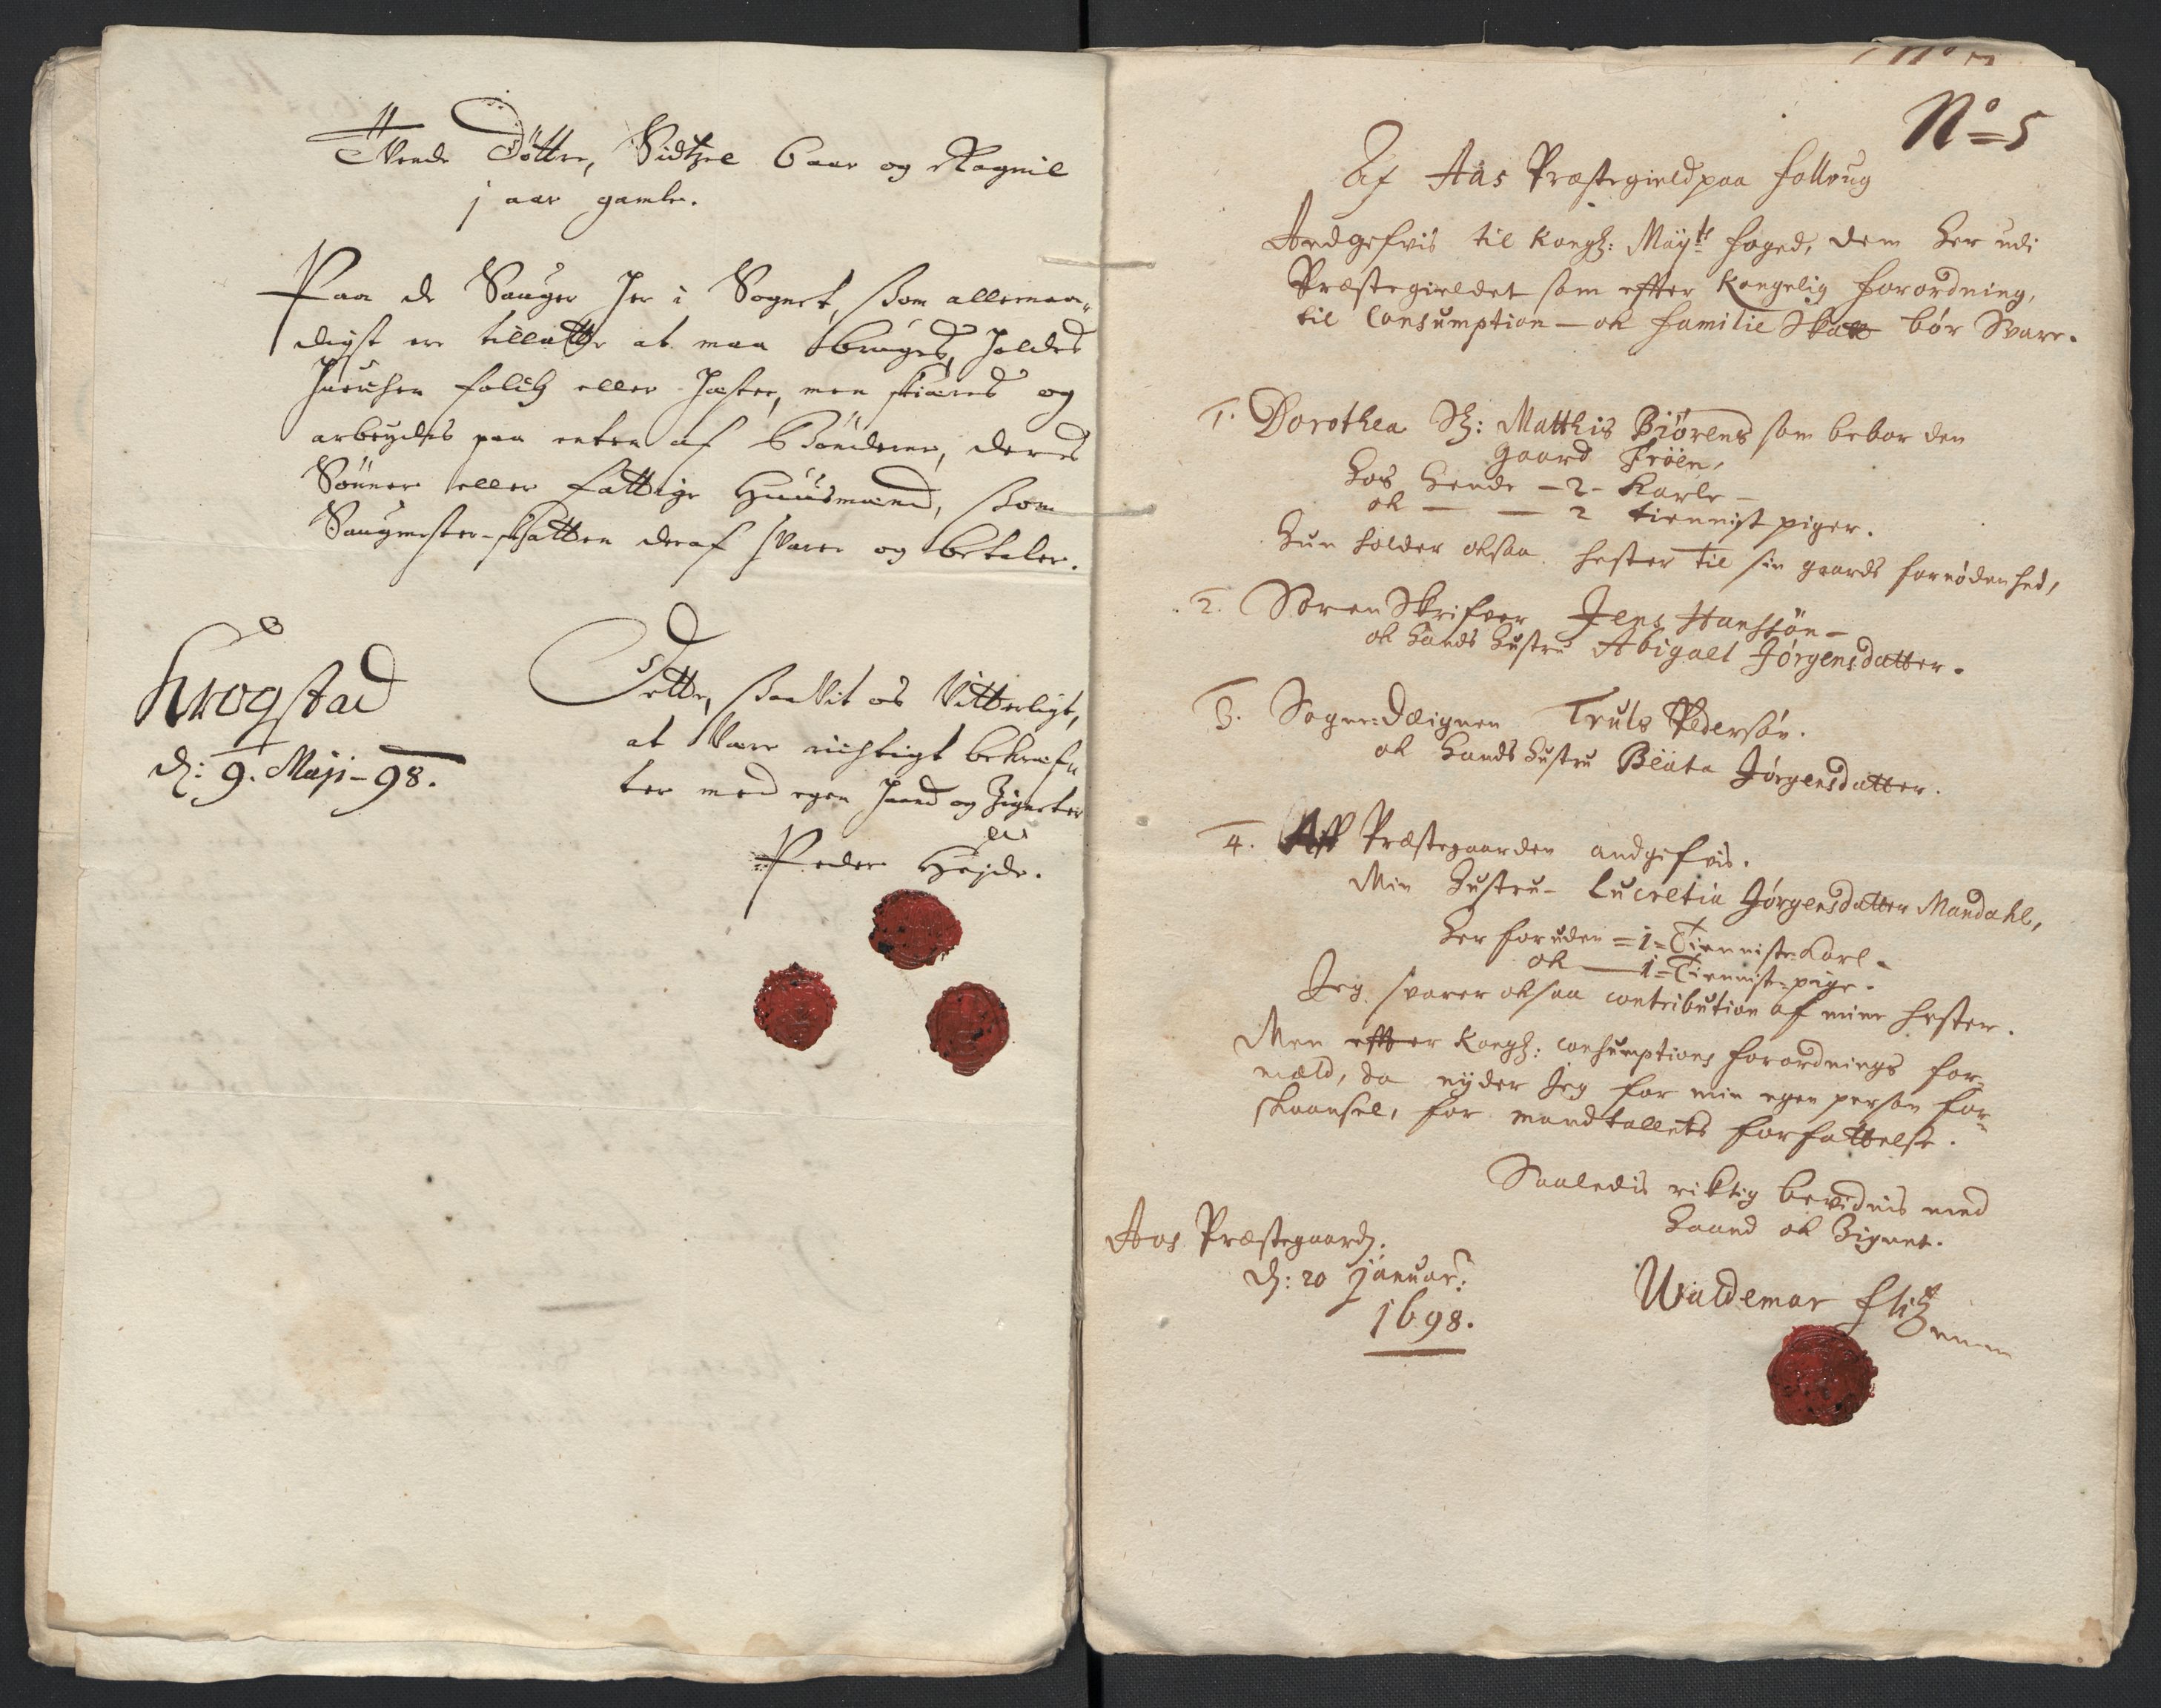 Tvende Döttre, Sidtzel 6 aar og Ragnil
j aar gamle.
Paa de Sauger her i Sognet, som allernaa„
digst ere tilladte at maa bruges, holdes
huerchen folch eller hester, men skiæres og
arbeydes paa enten af Bönderne, deres
Sönner eller fattige Huusmænd, som
Saugmester-skatten deraf svarer og betaler.
Krogstad
d: 9. Maji-98.
Dette, saavit os Vitterligt,
at være richtigt bekræf„
ter med egen haand og Zigneter
Peder Hejde.
No=5
Af Aas Præstegield paa folloug
Andgifvis til Kongl: Mayts foged, dem her udi
Præstegieldet som efter Kongelig forordning,
til Consumption- ok familie Skatt bör Svare.
1. Dorothea Sl: Matthis Biörens som beboer den
gaard Fröen,
hos hende -2- Karle-
ok — — 2 tiennist piger.
hun holder oksaa hester til sin gaards fornödenhed,
2. Soren Skrifver Jens Hanssön-
ok hands hustru Abigael Jörgensdatter.
3. Sogne=Dæignen Truls Pedersön.
ok hands hustru Beata Jörgensdatter.
4. Aff Præstegaarden andgifvis.
Min hustru- Lucretia Jörgensdatter Mandahl,
her foruden =1= Tienniste=Karl-
ok —1= Tienniste=pige.
Jeg svarer oksaa contribution af mine hester.
Men efter Kongl: consumptions forordnings for=
mæld, da nyder Jeg for min egen person for=
skaansel, for mandtallets forfattelse.
Saaledis riktig bevidnis med
haand ok Zignet.
Aas Præstegaard,
d: 20 januar:
1698.
Waldemar